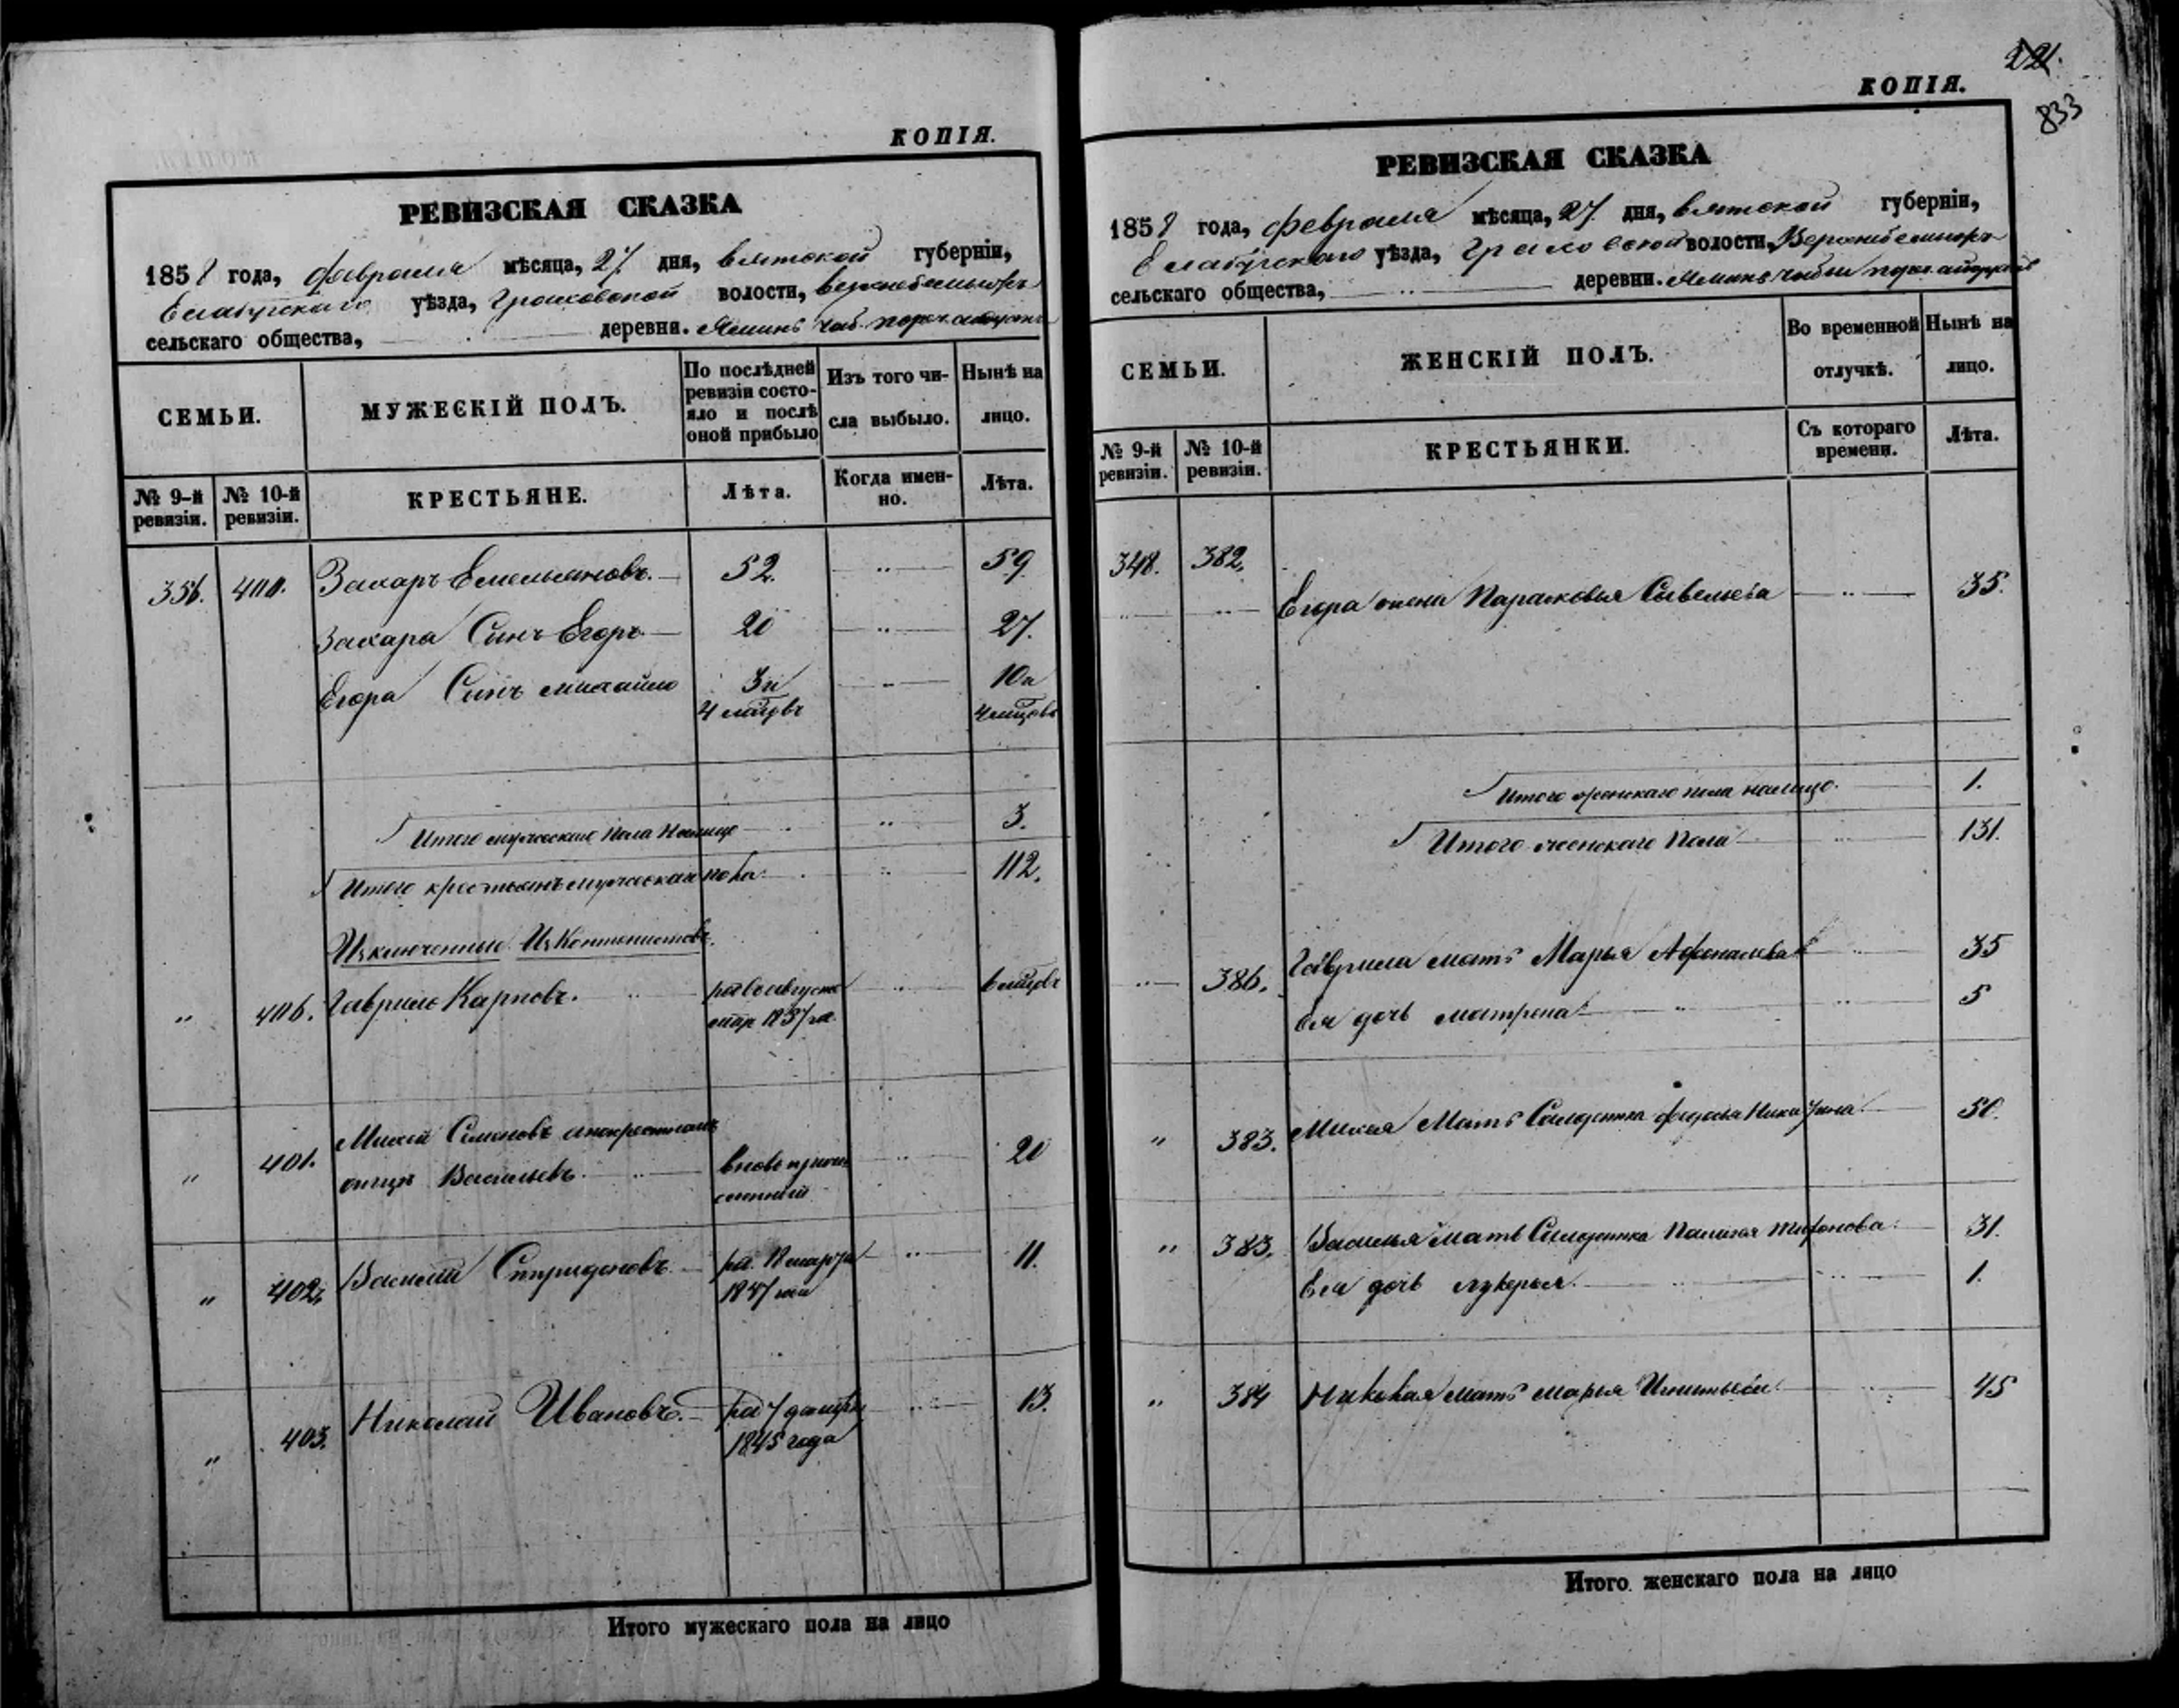 КОПІЯ.
РЕВИЗСКАЯ СКАЗКА
1858 года, февраля мѣсяца, 27 дня, вятской губерніи,
Елабугскаго уѣзда, Граховской волости,
сельскаго общества, деревни.
СЕМЬИ.
МУЖЕСКІЙ ПОЛЪ.
По послѣдней ревизіи состояло и послѣ оной прибыло
Изъ того числа выбыло.
Нынѣ на лицо.
№ 9-й ревизіи.
№ 10-й ревизіи.
КРЕСТЬЯНЕ.
Лѣта.
Когда именно.
Лѣта.
356. 400. Захаръ Емельяновъ. 52. 59
Захара Сынъ Егоръ 20 27.
Егора Сынъ Михайло 3 и 10 и
4 4
Итого мужескаго пола налицо 3.
Итого крестьянъ мужескаго пола 112.
Изключенные Изкантонистовъ.
" 406. Гаврило Карповъ.
" 401. Михей Семеновъ
Васильевъ. вновь 20
" 402. Василий Спиридоновъ. 11.
1847
" 403. Николай Ивановъ. 13.
1845 года
Итого мужескаго пола на лицо
221.
833
КОПІЯ.
РЕВИЗСКАЯ СКАЗКА
1858 года, февраля мѣсяца, 27 дня, вятской губерніи,
Елабугскаго уѣзда, Граховской волости,
сельскаго общества, деревни.
СЕМЬИ.
ЖЕНСКІЙ ПОЛЪ.
Во временной отлучкѣ.
Нынѣ на лицо.
№ 9-й ревизіи.
№ 10-й ревизіи.
КРЕСТЬЯНКИ.
Съ котораго времени.
Лѣта.
348. 382.
Егора жена Парасковья Савельева 35.
Итого женскаго пола налицо. 1.
Итого женскаго пола 131.
386. Гаврила мать Марья Афанасьева 35
Ея дочь Матрена 5
" 383. Михея Мать Солдатка 50.
" 383. Василья Мать Солдатка 31.
Ея дочь Лукерья. 1.
" 384 Николая мать Марья 45
Итого женскаго пола на лицо